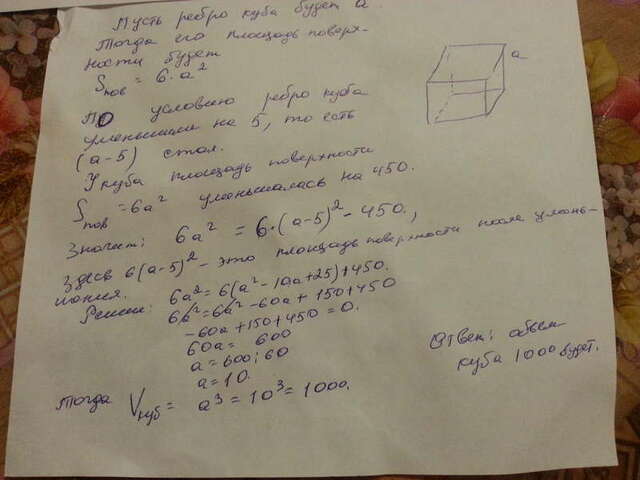 Пусть ребро куба будет a.
Тогда его площадь поверх-
ности будет
Sпов = 6·a²
a
По условию ребро куба
уменьшили на 5, то есть
(a-5) стал.
У куба площадь поверхности
Sпов = 6a² уменьшилась на 450.
Значит: 6a² = 6·(a-5)² - 450,
Здесь 6(a-5)² - это площадь поверхности после умень-
шения.
Решим: 6a² = 6(a² - 10a + 25) + 450.
6a² = 6a² - 60a + 150 + 450
-60a + 150 + 450 = 0.
60a = 600
a = 600 : 60
a = 10.
Тогда Vкуб = a³ = 10³ = 1000.
Ответ: объем
куба 1000 будет.